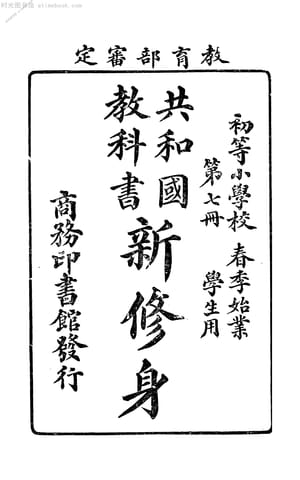 时光图书馆 alinebook.com
教育部審定
初等小學校 春季始業
第七冊 學生用
共和國
教科書
新修身
商務印書館發行